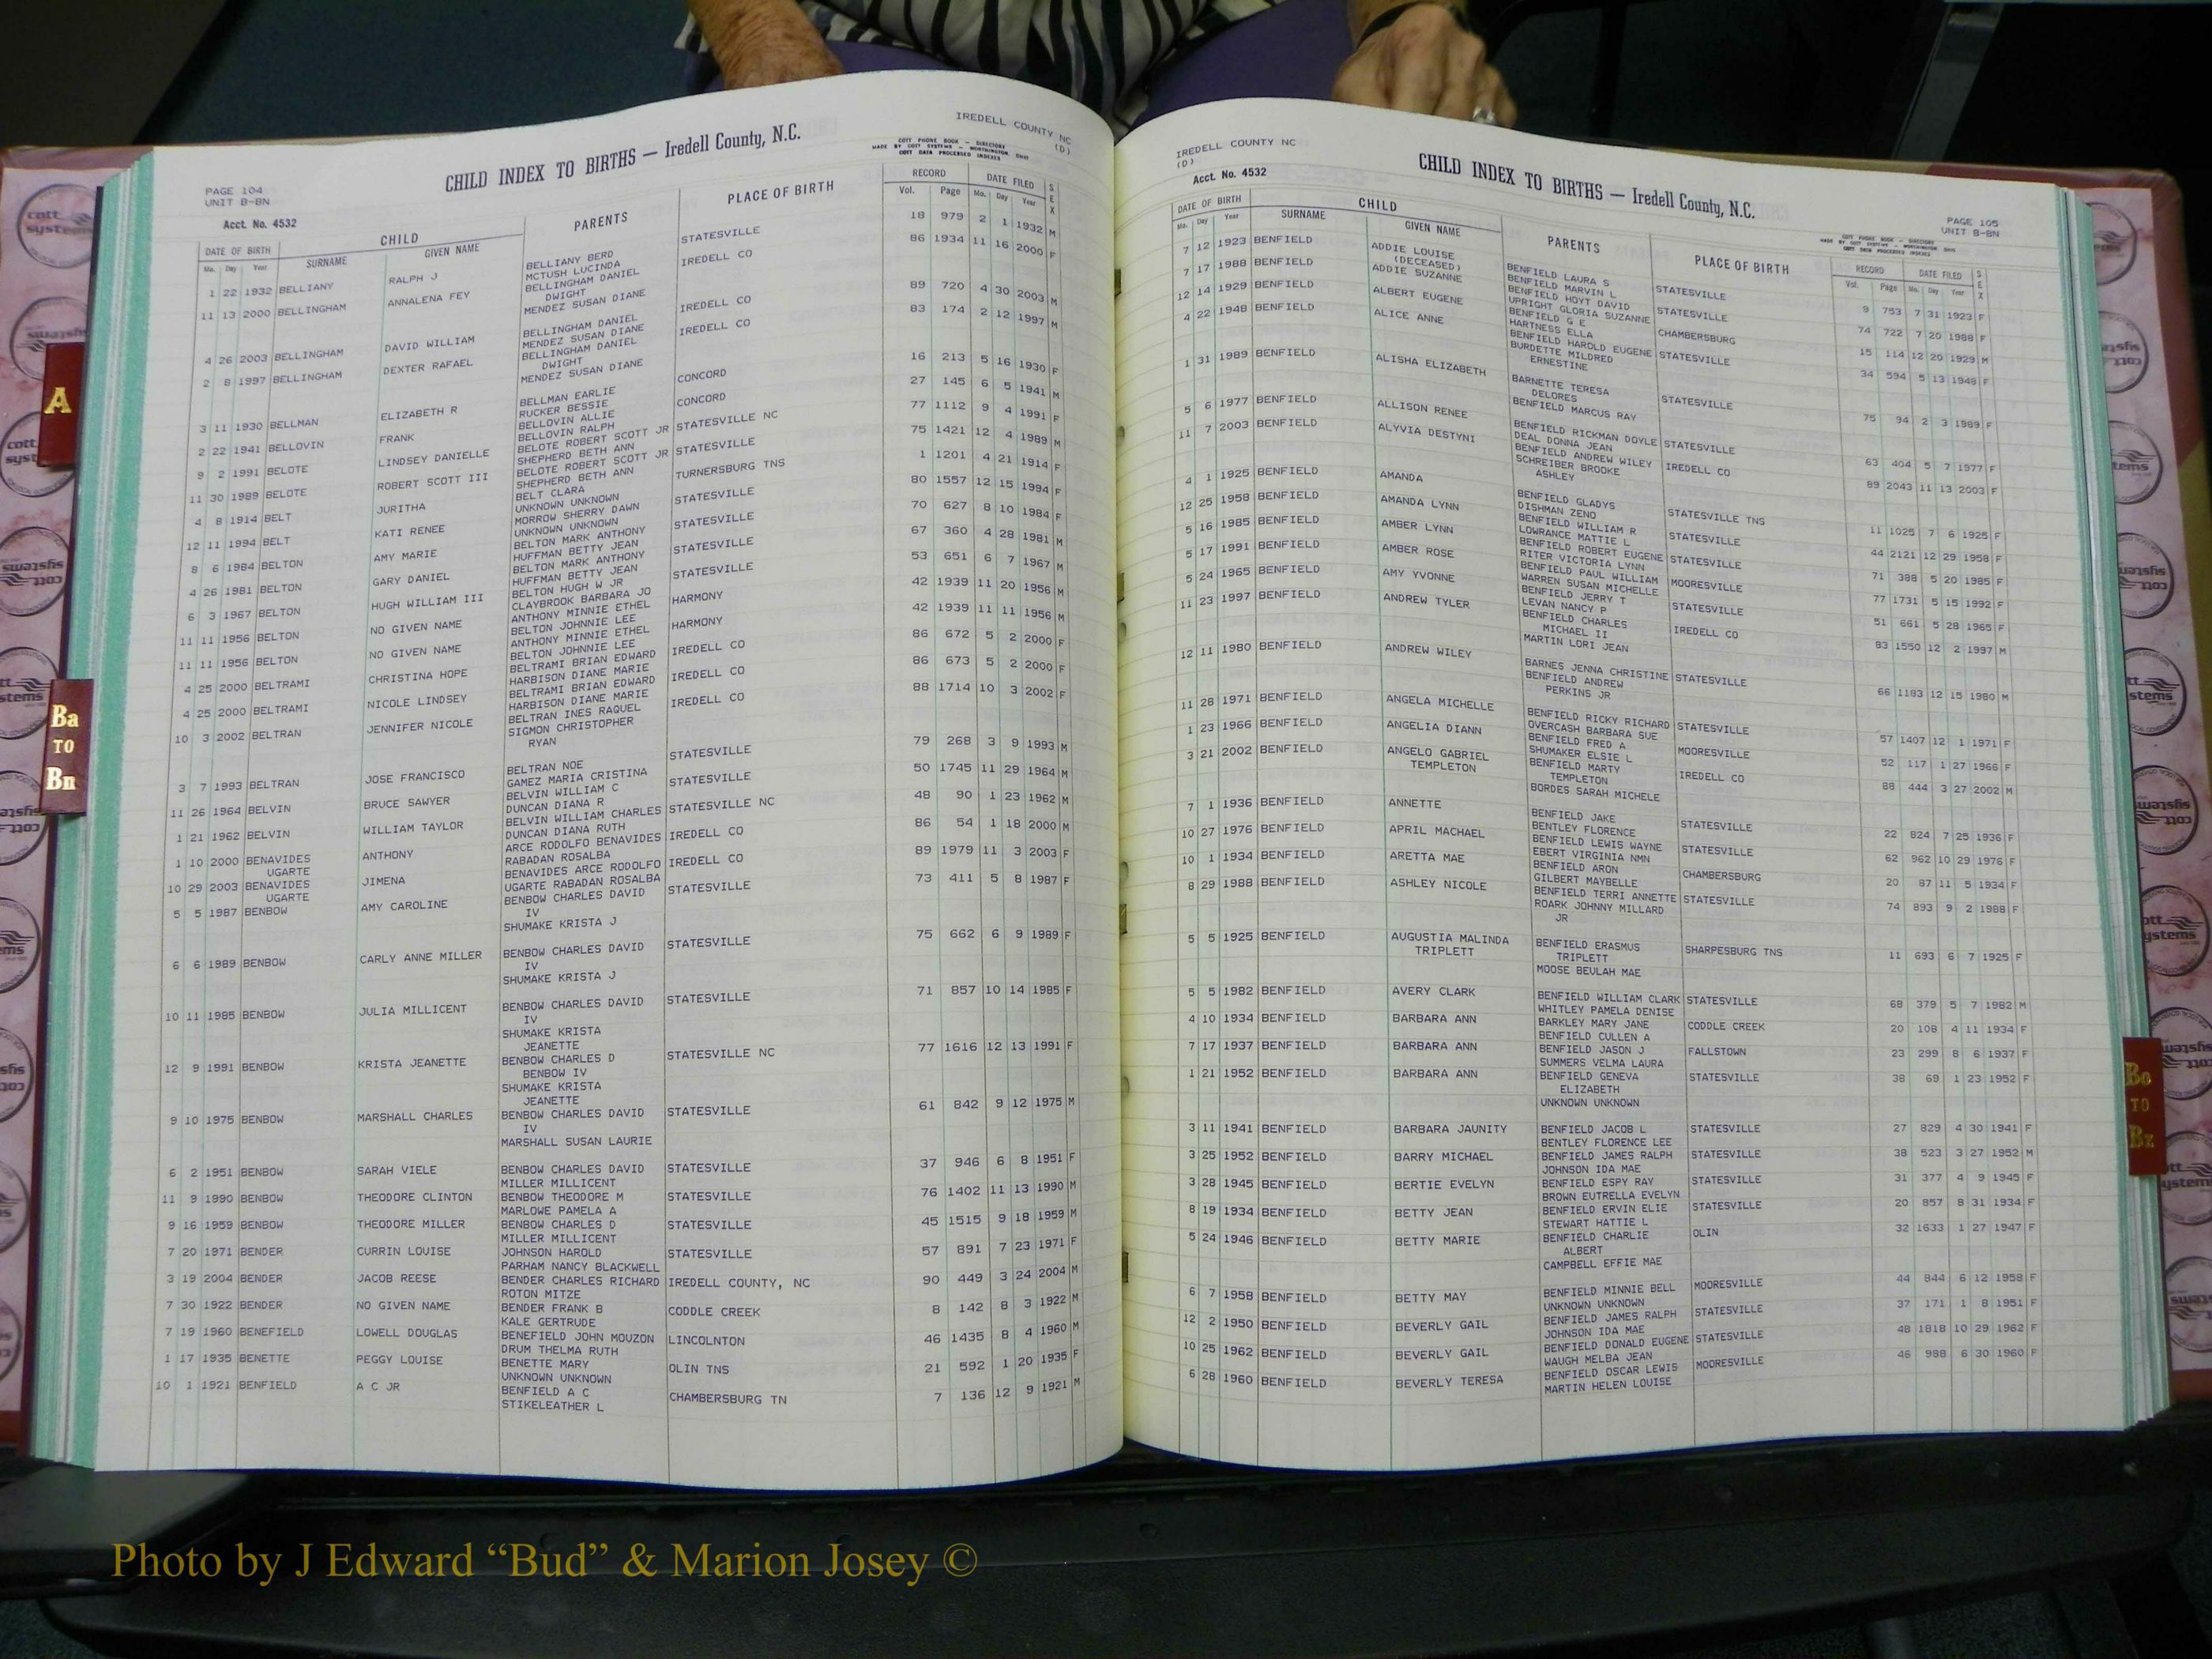 IREDELL COUNTY NC
(D)
CHILD INDEX TO BIRTHS — Iredell County, N.C.
COTT PHONE BOOK - DIRECTORY
MADE BY COTT SYSTEMS - WORTHINGTON, OHIO
COTT DATA PROCESSED INDEXES
PAGE 104
UNIT B-BN
Acct. No. 4532
CHILD PARENTS PLACE OF BIRTH RECORD DATE FILED SEX
DATE OF BIRTH SURNAME GIVEN NAME Vol. Page Mo. Day Year
Mo. Day Year
1 22 1932 BELLIANY RALPH J BELLIANY BERD STATESVILLE 18 979 2 1 1932 M
MCTUSH LUCINDA
11 13 2000 BELLINGHAM ANNALENA FEY BELLINGHAM DANIEL IREDELL CO 86 1934 11 16 2000 F
DWIGHT
MENDEZ SUSAN DIANE
4 26 2003 BELLINGHAM DAVID WILLIAM BELLINGHAM DANIEL IREDELL CO 89 720 4 30 2003 M
MENDEZ SUSAN DIANE
2 8 1997 BELLINGHAM DEXTER RAFAEL BELLINGHAM DANIEL IREDELL CO 83 174 2 12 1997 M
DWIGHT
MENDEZ SUSAN DIANE
3 11 1930 BELLMAN ELIZABETH R BELLMAN EARLIE CONCORD 16 213 5 16 1930 F
RUCKER BESSIE
2 22 1941 BELLOVIN FRANK BELLOVIN ALLIE CONCORD 27 145 6 5 1941 M
BELLOVIN RALPH
9 2 1991 BELOTE LINDSEY DANIELLE BELOTE ROBERT SCOTT JR STATESVILLE NC 77 1112 9 4 1991 F
SHEPHERD BETH ANN
11 30 1989 BELOTE ROBERT SCOTT III BELOTE ROBERT SCOTT JR STATESVILLE 75 1421 12 4 1989 M
SHEPHERD BETH ANN
4 8 1914 BELT JURITHA BELT CLARA TURNERSBURG TNS 1 1201 4 21 1914 F
UNKNOWN UNKNOWN
12 11 1994 BELT KATI RENEE MORROW SHERRY DAWN STATESVILLE 80 1557 12 15 1994 F
UNKNOWN UNKNOWN
8 6 1984 BELTON AMY MARIE BELTON MARK ANTHONY STATESVILLE 70 627 8 10 1984 F
HUFFMAN BETTY JEAN
4 26 1981 BELTON GARY DANIEL BELTON MARK ANTHONY STATESVILLE 67 360 4 28 1981 M
HUFFMAN BETTY JEAN
6 3 1967 BELTON HUGH WILLIAM III BELTON HUGH W JR STATESVILLE 53 651 6 7 1967 M
CLAYBROOK BARBARA JO
11 11 1956 BELTON NO GIVEN NAME ANTHONY MINNIE ETHEL HARMONY 42 1939 11 20 1956 M
BELTON JOHNNIE LEE
11 11 1956 BELTON NO GIVEN NAME ANTHONY MINNIE ETHEL HARMONY 42 1939 11 11 1956 M
BELTON JOHNNIE LEE
4 25 2000 BELTRAMI CHRISTINA HOPE BELTRAMI BRIAN EDWARD IREDELL CO 86 672 5 2 2000 F
HARBISON DIANE MARIE
4 25 2000 BELTRAMI NICOLE LINDSEY BELTRAMI BRIAN EDWARD IREDELL CO 86 673 5 2 2000 F
HARBISON DIANE MARIE
10 3 2002 BELTRAN JENNIFER NICOLE BELTRAN INES RAQUEL IREDELL CO 88 1714 10 3 2002 F
SIGMON CHRISTOPHER
RYAN
3 7 1993 BELTRAN JOSE FRANCISCO BELTRAN NOE STATESVILLE 79 268 3 9 1993 M
GAMEZ MARIA CRISTINA
11 26 1964 BELVIN BRUCE SAWYER BELVIN WILLIAM C STATESVILLE 50 1745 11 29 1964 M
DUNCAN DIANA R
1 21 1962 BELVIN WILLIAM TAYLOR BELVIN WILLIAM CHARLES STATESVILLE NC 48 90 1 23 1962 M
DUNCAN DIANA RUTH
1 10 2000 BENAVIDES ANTHONY ARCE RODOLFO BENAVIDES IREDELL CO 86 54 1 18 2000 M
UGARTE RABADAN ROSALBA
10 29 2003 BENAVIDES JIMENA BENAVIDES ARCE RODOLFO IREDELL CO 89 1979 11 3 2003 F
UGARTE UGARTE RABADAN ROSALBA
5 5 1987 BENBOW AMY CAROLINE BENBOW CHARLES DAVID STATESVILLE 73 411 5 8 1987 F
IV
SHUMAKE KRISTA J
6 6 1989 BENBOW CARLY ANNE MILLER BENBOW CHARLES DAVID STATESVILLE 75 662 6 9 1989 F
IV
SHUMAKE KRISTA J
10 11 1985 BENBOW JULIA MILLICENT BENBOW CHARLES DAVID STATESVILLE 71 857 10 14 1985 F
IV
SHUMAKE KRISTA
JEANETTE
12 9 1991 BENBOW KRISTA JEANETTE BENBOW CHARLES D STATESVILLE NC 77 1616 12 13 1991 F
BENBOW IV
SHUMAKE KRISTA
JEANETTE
9 10 1975 BENBOW MARSHALL CHARLES BENBOW CHARLES DAVID STATESVILLE 61 842 9 12 1975 M
IV
MARSHALL SUSAN LAURIE
6 2 1951 BENBOW SARAH VIELE BENBOW CHARLES DAVID STATESVILLE 37 946 6 8 1951 F
MILLER MILLICENT
11 9 1990 BENBOW THEODORE CLINTON BENBOW THEODORE M STATESVILLE 76 1402 11 13 1990 M
MARLOWE PAMELA A
9 16 1959 BENBOW THEODORE MILLER BENBOW CHARLES D STATESVILLE 45 1515 9 18 1959 M
MILLER MILLICENT
7 20 1971 BENDER CURRIN LOUISE JOHNSON HAROLD STATESVILLE 57 891 7 23 1971 F
PARHAM NANCY BLACKWELL
3 19 2004 BENDER JACOB REESE BENDER CHARLES RICHARD IREDELL COUNTY, NC 90 449 3 24 2004 M
ROTON MITZE
7 30 1922 BENDER NO GIVEN NAME BENDER FRANK B CODDLE CREEK 8 142 8 3 1922 M
KALE GERTRUDE
7 19 1960 BENEFIELD LOWELL DOUGLAS BENEFIELD JOHN MOUZON LINCOLNTON 46 1435 8 4 1960 M
DRUM THELMA RUTH
1 17 1935 BENETTE PEGGY LOUISE BENETTE MARY OLIN TNS 21 592 1 20 1935 F
UNKNOWN UNKNOWN
10 1 1921 BENFIELD A C JR BENFIELD A C CHAMBERSBURG TN 7 136 12 9 1921 M
STIKELEATHER L
IREDELL COUNTY NC
(D)
Acct. No. 4532
CHILD INDEX TO BIRTHS — Iredell County, N.C.
PAGE 105
UNIT B-BN
DATE OF BIRTH CHILD PARENTS PLACE OF BIRTH RECORD DATE FILED SEX
Mo. Day Year SURNAME GIVEN NAME Vol. Page Mo. Day Year
7 12 1923 BENFIELD ADDIE LOUISE BENFIELD LAURA S STATESVILLE 9 753 7 31 1923 F
(DECEASED) BENFIELD MARVIN L
7 17 1988 BENFIELD ADDIE SUZANNE BENFIELD HOYT DAVID STATESVILLE 74 722 7 20 1988 F
UPRIGHT GLORIA SUZANNE
12 14 1929 BENFIELD ALBERT EUGENE BENFIELD G E CHAMBERSBURG 15 114 12 20 1929 M
HARTNESS ELLA
4 22 1948 BENFIELD ALICE ANNE BENFIELD HAROLD EUGENE STATESVILLE 34 594 5 13 1948 F
BURDETTE MILDRED
ERNESTINE
1 31 1989 BENFIELD ALISHA ELIZABETH BARNETTE TERESA STATESVILLE 75 94 2 3 1989 F
DELORES
BENFIELD MARCUS RAY
5 6 1977 BENFIELD ALLISON RENEE BENFIELD RICKMAN DOYLE STATESVILLE 63 404 5 7 1977 F
DEAL DONNA JEAN
11 7 2003 BENFIELD ALYVIA DESTYNI BENFIELD ANDREW WILEY IREDELL CO 89 2043 11 13 2003 F
SCHREIBER BROOKE
ASHLEY
4 1 1925 BENFIELD AMANDA BENFIELD GLADYS STATESVILLE TNS 11 1025 7 6 1925 F
DISHMAN ZENO
12 25 1958 BENFIELD AMANDA LYNN BENFIELD WILLIAM R STATESVILLE 44 2121 12 29 1958 F
LOWRANCE MATTIE L
5 16 1985 BENFIELD AMBER LYNN BENFIELD ROBERT EUGENE STATESVILLE 71 388 5 20 1985 F
RITER VICTORIA LYNN
5 17 1991 BENFIELD AMBER ROSE BENFIELD PAUL WILLIAM MOORESVILLE 77 1731 5 15 1992 F
WARREN SUSAN MICHELLE
5 24 1965 BENFIELD AMY YVONNE BENFIELD JERRY T STATESVILLE 51 661 5 28 1965 F
LEVAN NANCY P
11 23 1997 BENFIELD ANDREW TYLER BENFIELD CHARLES IREDELL CO 83 1550 12 2 1997 M
MICHAEL II
MARTIN LORI JEAN
12 11 1980 BENFIELD ANDREW WILEY BARNES JENNA CHRISTINE STATESVILLE 66 1183 12 15 1980 M
BENFIELD ANDREW
PERKINS JR
11 28 1971 BENFIELD ANGELA MICHELLE BENFIELD RICKY RICHARD STATESVILLE 57 1407 12 1 1971 F
OVERCASH BARBARA SUE
1 23 1966 BENFIELD ANGELIA DIANN BENFIELD FRED A MOORESVILLE 52 117 1 27 1966 F
SHUMAKER ELSIE L
3 21 2002 BENFIELD ANGELO GABRIEL BENFIELD MARTY IREDELL CO 88 444 3 27 2002 M
TEMPLETON TEMPLETON
BORDES SARAH MICHELE
7 1 1936 BENFIELD ANNETTE BENFIELD JAKE STATESVILLE 22 824 7 25 1936 F
BENTLEY FLORENCE
10 27 1976 BENFIELD APRIL MACHAEL BENFIELD LEWIS WAYNE STATESVILLE 62 962 10 29 1976 F
EBERT VIRGINIA NMN
10 1 1934 BENFIELD ARETTA MAE BENFIELD ARON CHAMBERSBURG 20 87 11 5 1934 F
GILBERT MAYBELLE
8 29 1988 BENFIELD ASHLEY NICOLE BENFIELD TERRI ANNETTE STATESVILLE 74 893 9 2 1988 F
ROARK JOHNNY MILLARD
JR
5 5 1925 BENFIELD AUGUSTIA MALINDA BENFIELD ERASMUS SHARPESBURG TNS 11 693 6 7 1925 F
TRIPLETT TRIPLETT
MOOSE BEULAH MAE
5 5 1982 BENFIELD AVERY CLARK BENFIELD WILLIAM CLARK STATESVILLE 68 379 5 7 1982 M
WHITLEY PAMELA DENISE
4 10 1934 BENFIELD BARBARA ANN BARKLEY MARY JANE CODDLE CREEK 20 108 4 11 1934 F
BENFIELD CULLEN A
7 17 1937 BENFIELD BARBARA ANN BENFIELD JASON J FALLSTOWN 23 299 8 6 1937 F
SUMMERS VELMA LAURA
1 21 1952 BENFIELD BARBARA ANN BENFIELD GENEVA STATESVILLE 38 69 1 23 1952 F
ELIZABETH
UNKNOWN UNKNOWN
3 11 1941 BENFIELD BARBARA JAUNITY BENFIELD JACOB L STATESVILLE 27 829 4 30 1941 F
BENTLEY FLORENCE LEE
3 25 1952 BENFIELD BARRY MICHAEL BENFIELD JAMES RALPH STATESVILLE 38 523 3 27 1952 M
JOHNSON IDA MAE
3 28 1945 BENFIELD BERTIE EVELYN BENFIELD ESPY RAY STATESVILLE 31 377 4 9 1945 F
BROWN EUTRELLA EVELYN
8 19 1934 BENFIELD BETTY JEAN BENFIELD ERVIN ELIE STATESVILLE 20 857 8 31 1934 F
STEWART HATTIE L
5 24 1946 BENFIELD BETTY MARIE BENFIELD CHARLIE OLIN 32 1633 1 27 1947 F
ALBERT
CAMPBELL EFFIE MAE
6 7 1958 BENFIELD BETTY MAY BENFIELD MINNIE BELL MOORESVILLE 44 844 6 12 1958 F
UNKNOWN UNKNOWN
12 2 1950 BENFIELD BEVERLY GAIL BENFIELD JAMES RALPH STATESVILLE 37 171 1 8 1951 F
JOHNSON IDA MAE
10 25 1962 BENFIELD BEVERLY GAIL BENFIELD DONALD EUGENE STATESVILLE 48 1818 10 29 1962 F
WAUGH MELBA JEAN
6 28 1960 BENFIELD BEVERLY TERESA BENFIELD OSCAR LEWIS MOORESVILLE 46 988 6 30 1960 F
MARTIN HELEN LOUISE
A
Ba
TO
Bn
Bo
TO
Bz
cott
systems
Photo by J Edward “Bud” & Marion Josey ©